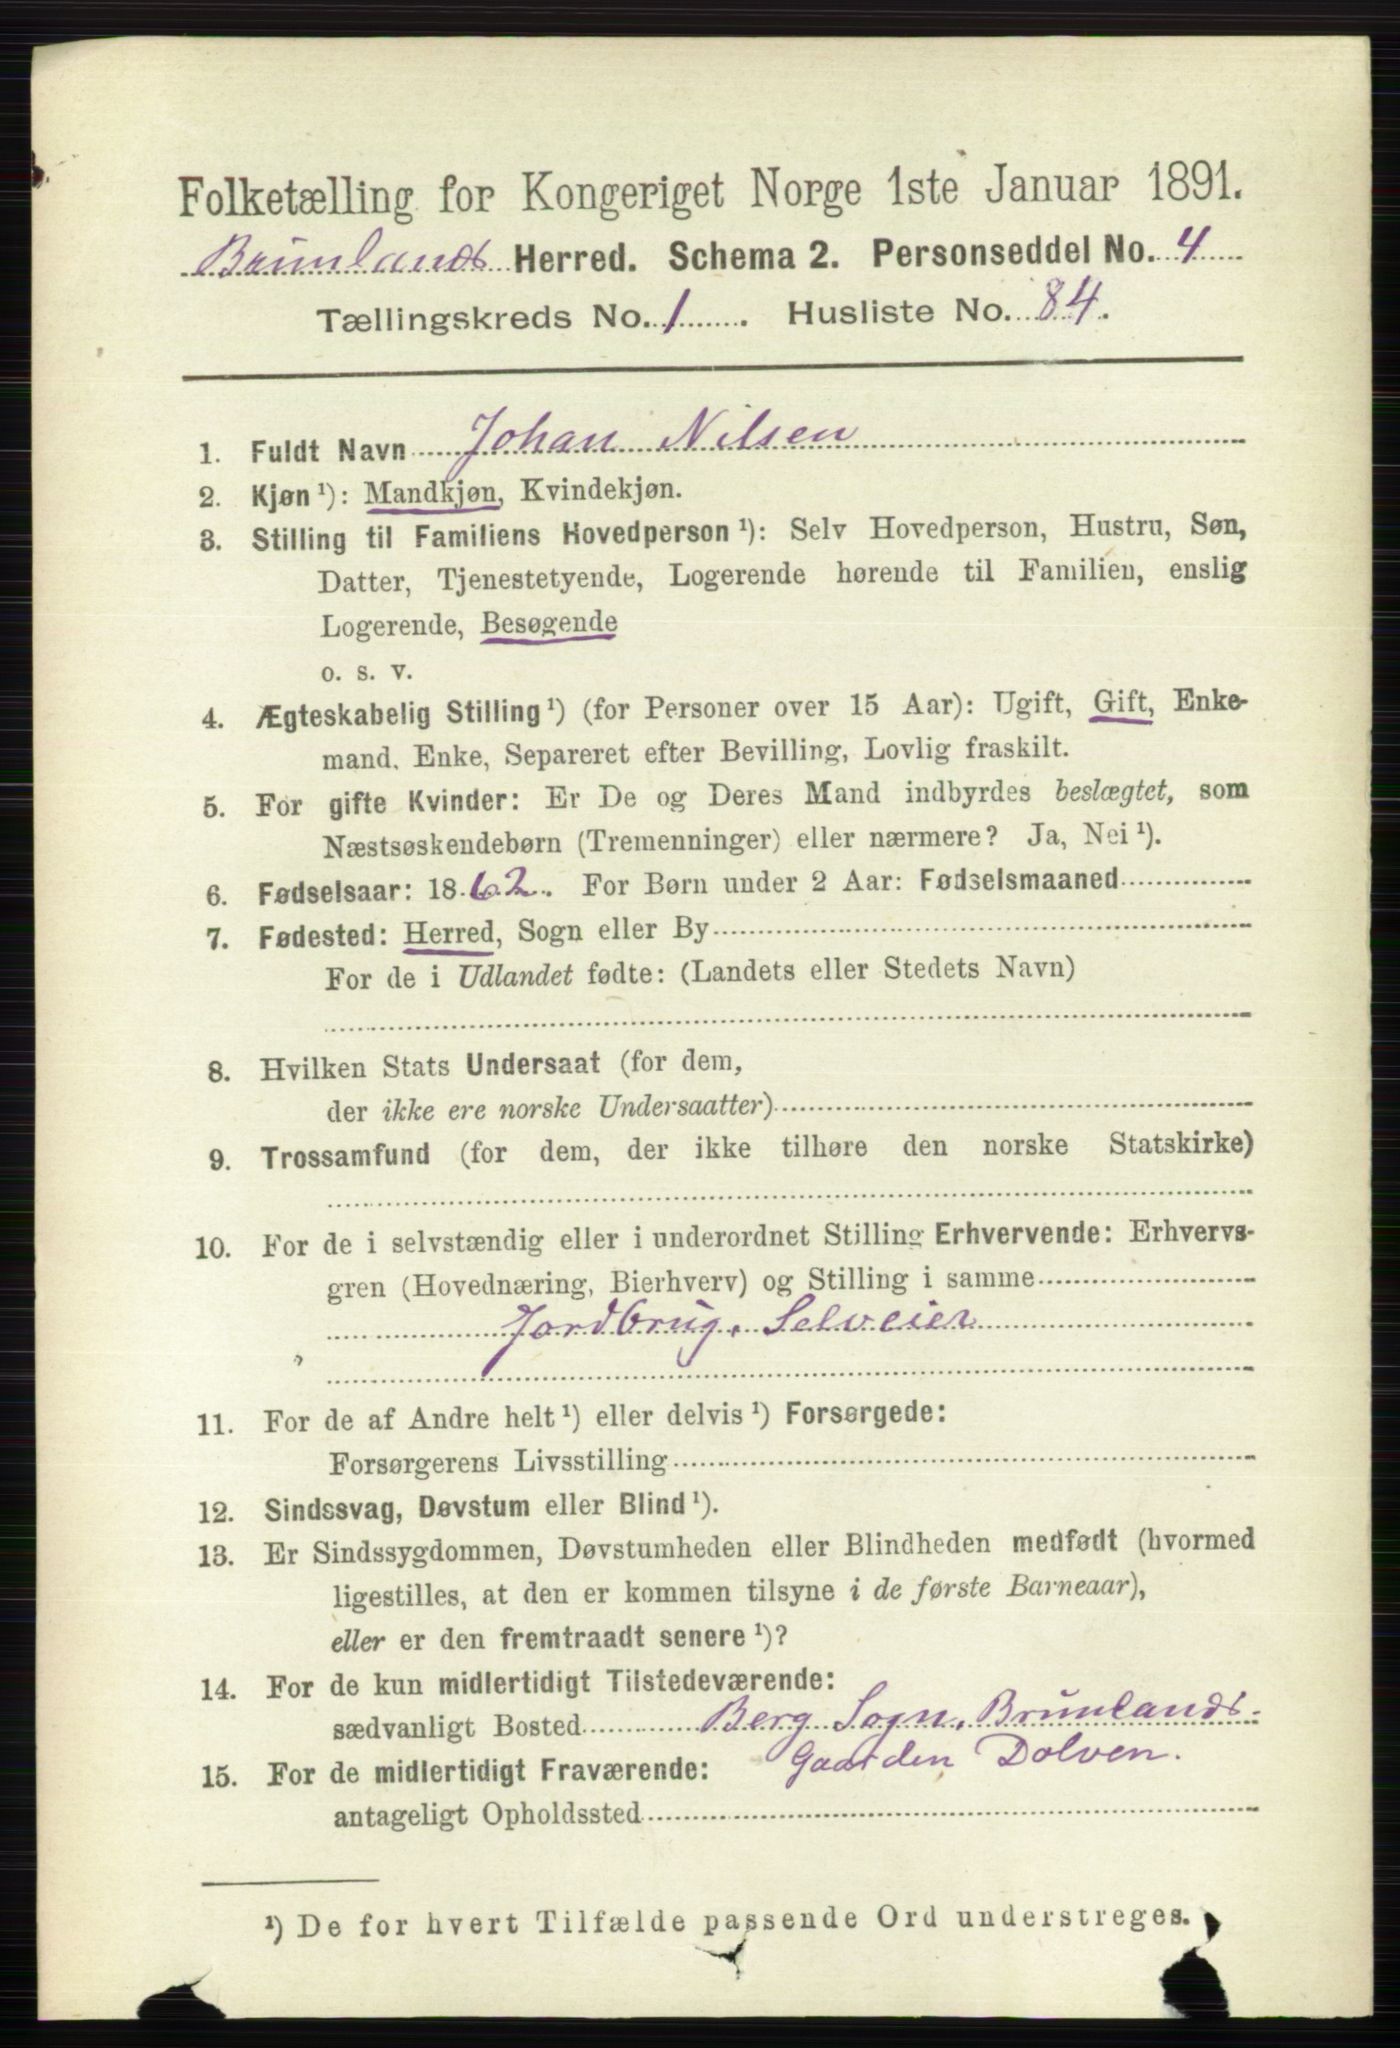 Folketælling for Kongeriget Norge 1ste Januar 1891.
Brunlands Herred. Schema 2. Personseddel No. 4
Tællingskreds No. 1. Husliste No. 84.
1. Fuldt Navn Johan Nilsen
2. Kjøn ¹): Mandkjøn, Kvindekjøn.
3. Stilling til Familiens Hovedperson ¹): Selv Hovedperson, Hustru, Søn,
Datter, Tjenestetyende, Logerende hørende til Familien, enslig
Logerende, Besøgende
o. s. v.
4. Ægteskabelig Stilling ¹) (for Personer over 15 Aar): Ugift, Gift, Enke-
mand, Enke, Separeret efter Bevilling, Lovlig fraskilt.
5. For gifte Kvinder: Er De og Deres Mand indbyrdes beslægtet, som
Næstsøskendebørn (Tremenninger) eller nærmere? Ja, Nei ¹).
6. Fødselsaar: 1862. For Børn under 2 Aar: Fødselsmaaned
7. Fødested: Herred, Sogn eller By
For de i Udlandet fødte: (Landets eller Stedets Navn)
8. Hvilken Stats Undersaat (for dem,
der ikke ere norske Undersaatter)
9. Trossamfund (for dem, der ikke tilhøre den norske Statskirke)
10. For de i selvstændig eller i underordnet Stilling Erhvervende: Erhvervs-
gren (Hovednæring, Bierhverv) og Stilling i samme
Jordbrug, Selveier
11. For de af Andre helt ¹) eller delvis ¹) Forsørgede:
Forsørgerens Livsstilling
12. Sindssvag, Døvstum eller Blind ¹).
13. Er Sindssygdommen, Døvstumheden eller Blindheden medfødt (hvormed
ligestilles, at den er kommen tilsyne i de første Barneaar),
eller er den fremtraadt senere ¹)?
14. For de kun midlertidigt Tilstedeværende:
sædvanligt Bosted Berg Sogn, Brunlands.
Gaarden Dolven.
15. For de midlertidigt Fraværende:
antageligt Opholdssted
¹) De for hvert Tilfælde passende Ord understreges.